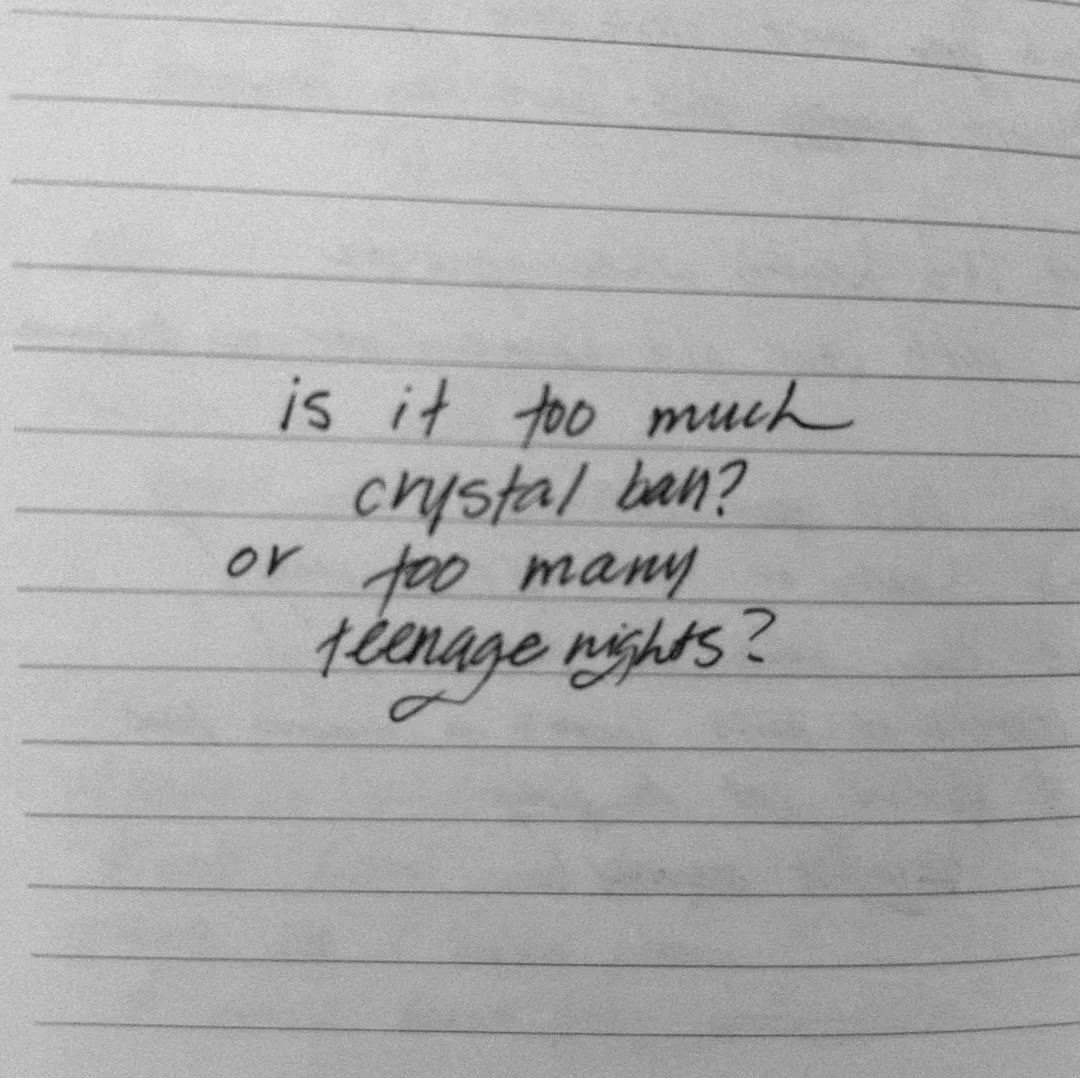 is it too much
crystal ball?
or too many
teenage nights?